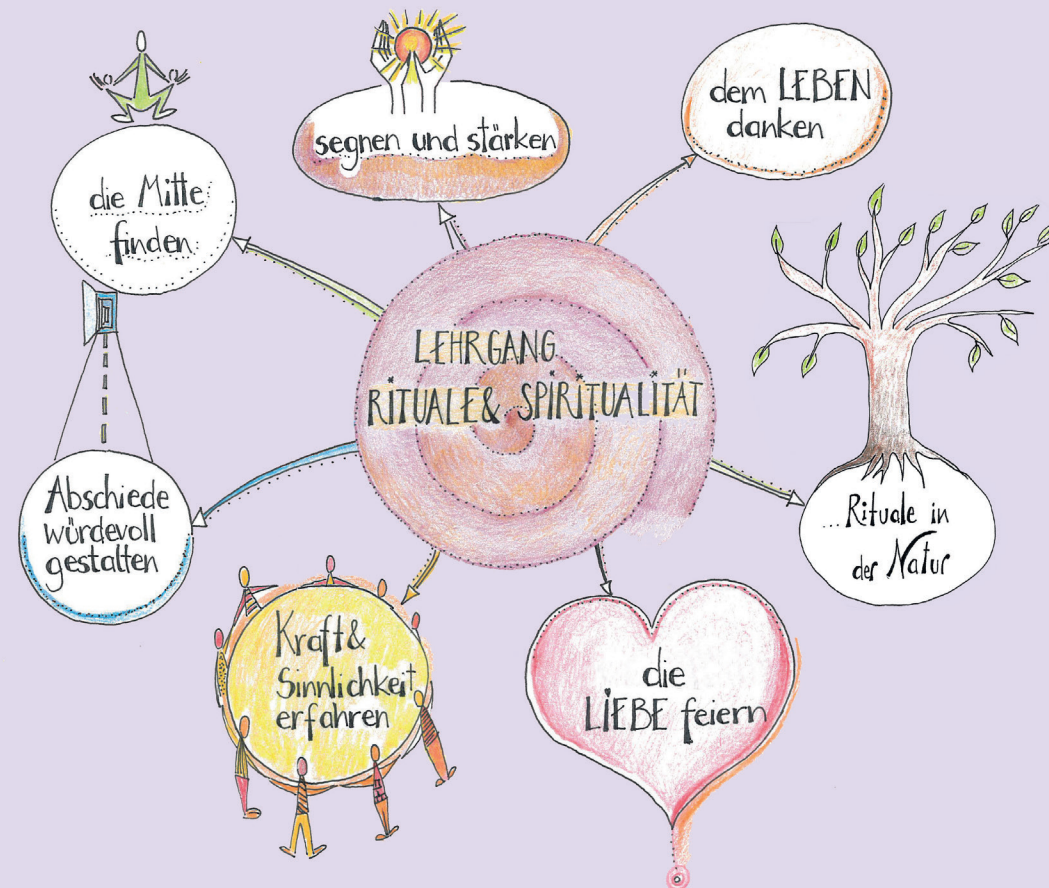 LEHRGANG
RITUALE & SPIRITUALITÄT
segnen und stärken
dem LEBEN
danken
...Rituale in
der Natur
die
LIEBE feiern
Kraft &
Sinnlichkeit
erfahren
Abschiede
würdevoll
gestalten
die Mitte
finden